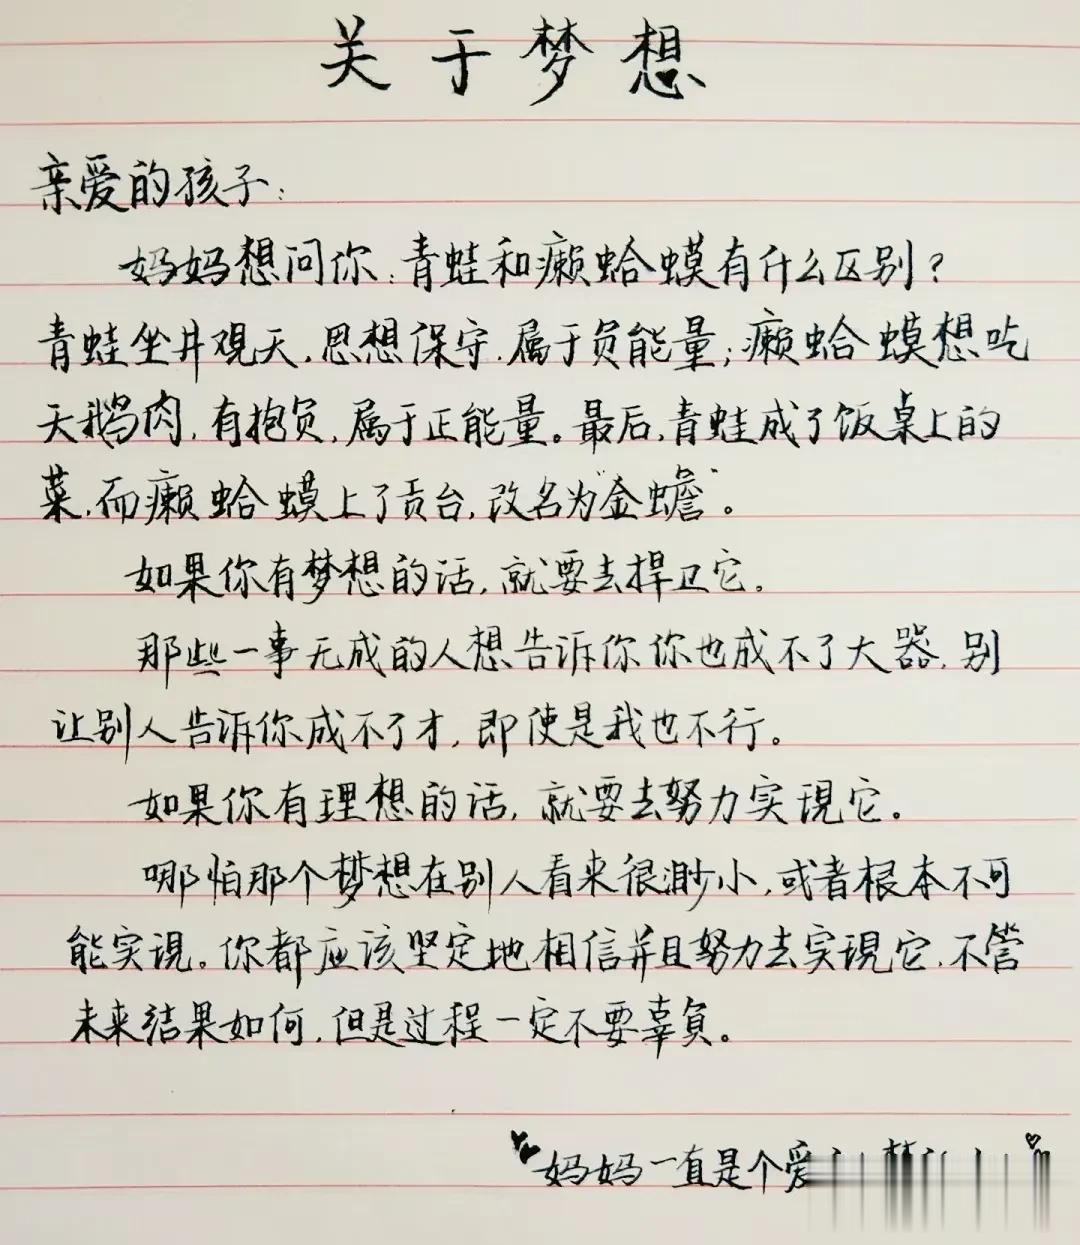 关于梦想
亲爱的孩子：
妈妈想问你：青蛙和癞蛤蟆有什么区别？
青蛙坐井观天，思想保守，属于负能量；癞蛤蟆想吃
天鹅肉，有抱负，属于正能量。最后，青蛙成了饭桌上的
菜，而癞蛤蟆上了贡台，改名为“金蟾”。
如果你有梦想的话，就要去捍卫它。
那些一事无成的人想告诉你你也成不了大器，别
让别人告诉你成不了才，即使是我也不行。
如果你有理想的话，就要去努力实现它。
哪怕那个梦想在别人看来很渺小，或者根本不可
能实现。你都应该坚定地相信并且努力去实现它，不管
未来结果如何，但是过程一定不要辜负。
妈妈一直是个爱